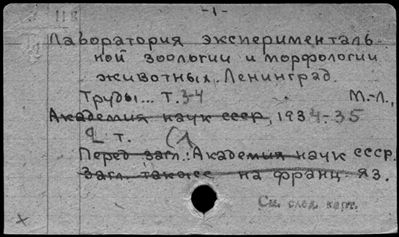 118
-1-
Лаборатория эксперименталь
ной зоологии и морфологии
животных. Ленинград.
Труды... Т.3-4 М.-Л.,
Академия наук ссср, 1934-35
2 т.
Перед загл.: Академия наук СССР.
Загл. также на франц. яз.
См. след. карт.